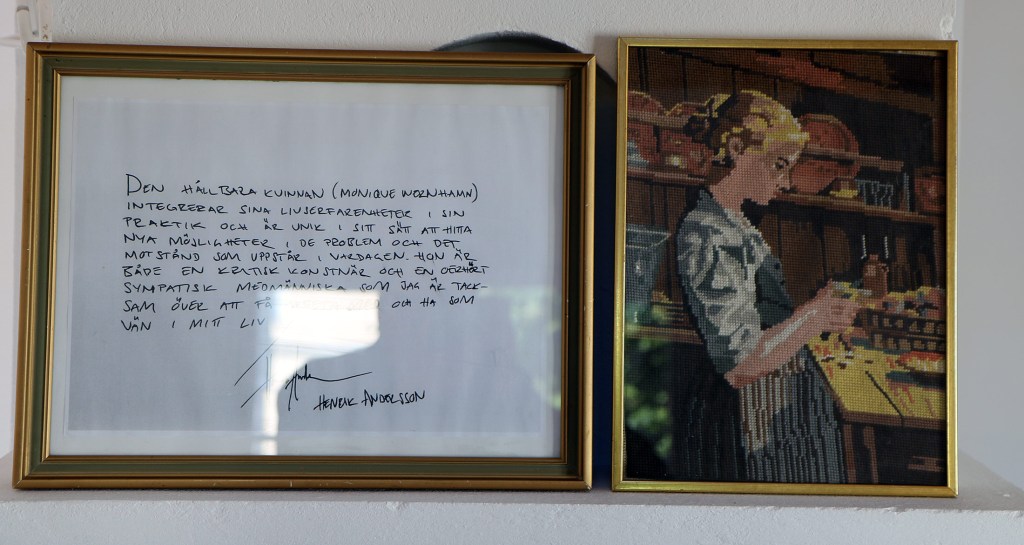 DEN HÅLLBARA KVINNAN (MONIQUE WERNHAMN)
INTEGRERAR SINA LIVSERFARENHETER I SIN
PRAKTIK OCH ÄR UNIK I SITT SÄTT ATT HITTA
NYA MÖJLIGHETER I DE PROBLEM OCH DET
MOTSTÅND SOM UPPSTÅR I VARDAGEN. HON ÄR
BÅDE EN KRITISK KONSTNÄR OCH EN OERHÖRT
SYMPATISK MEDMÄNNISKA SOM JAG ÄR TACK-
SAM ÖVER ATT FÅ OCH HA SOM
VÄN I MITT LIV
HENRIK ANDERSSON